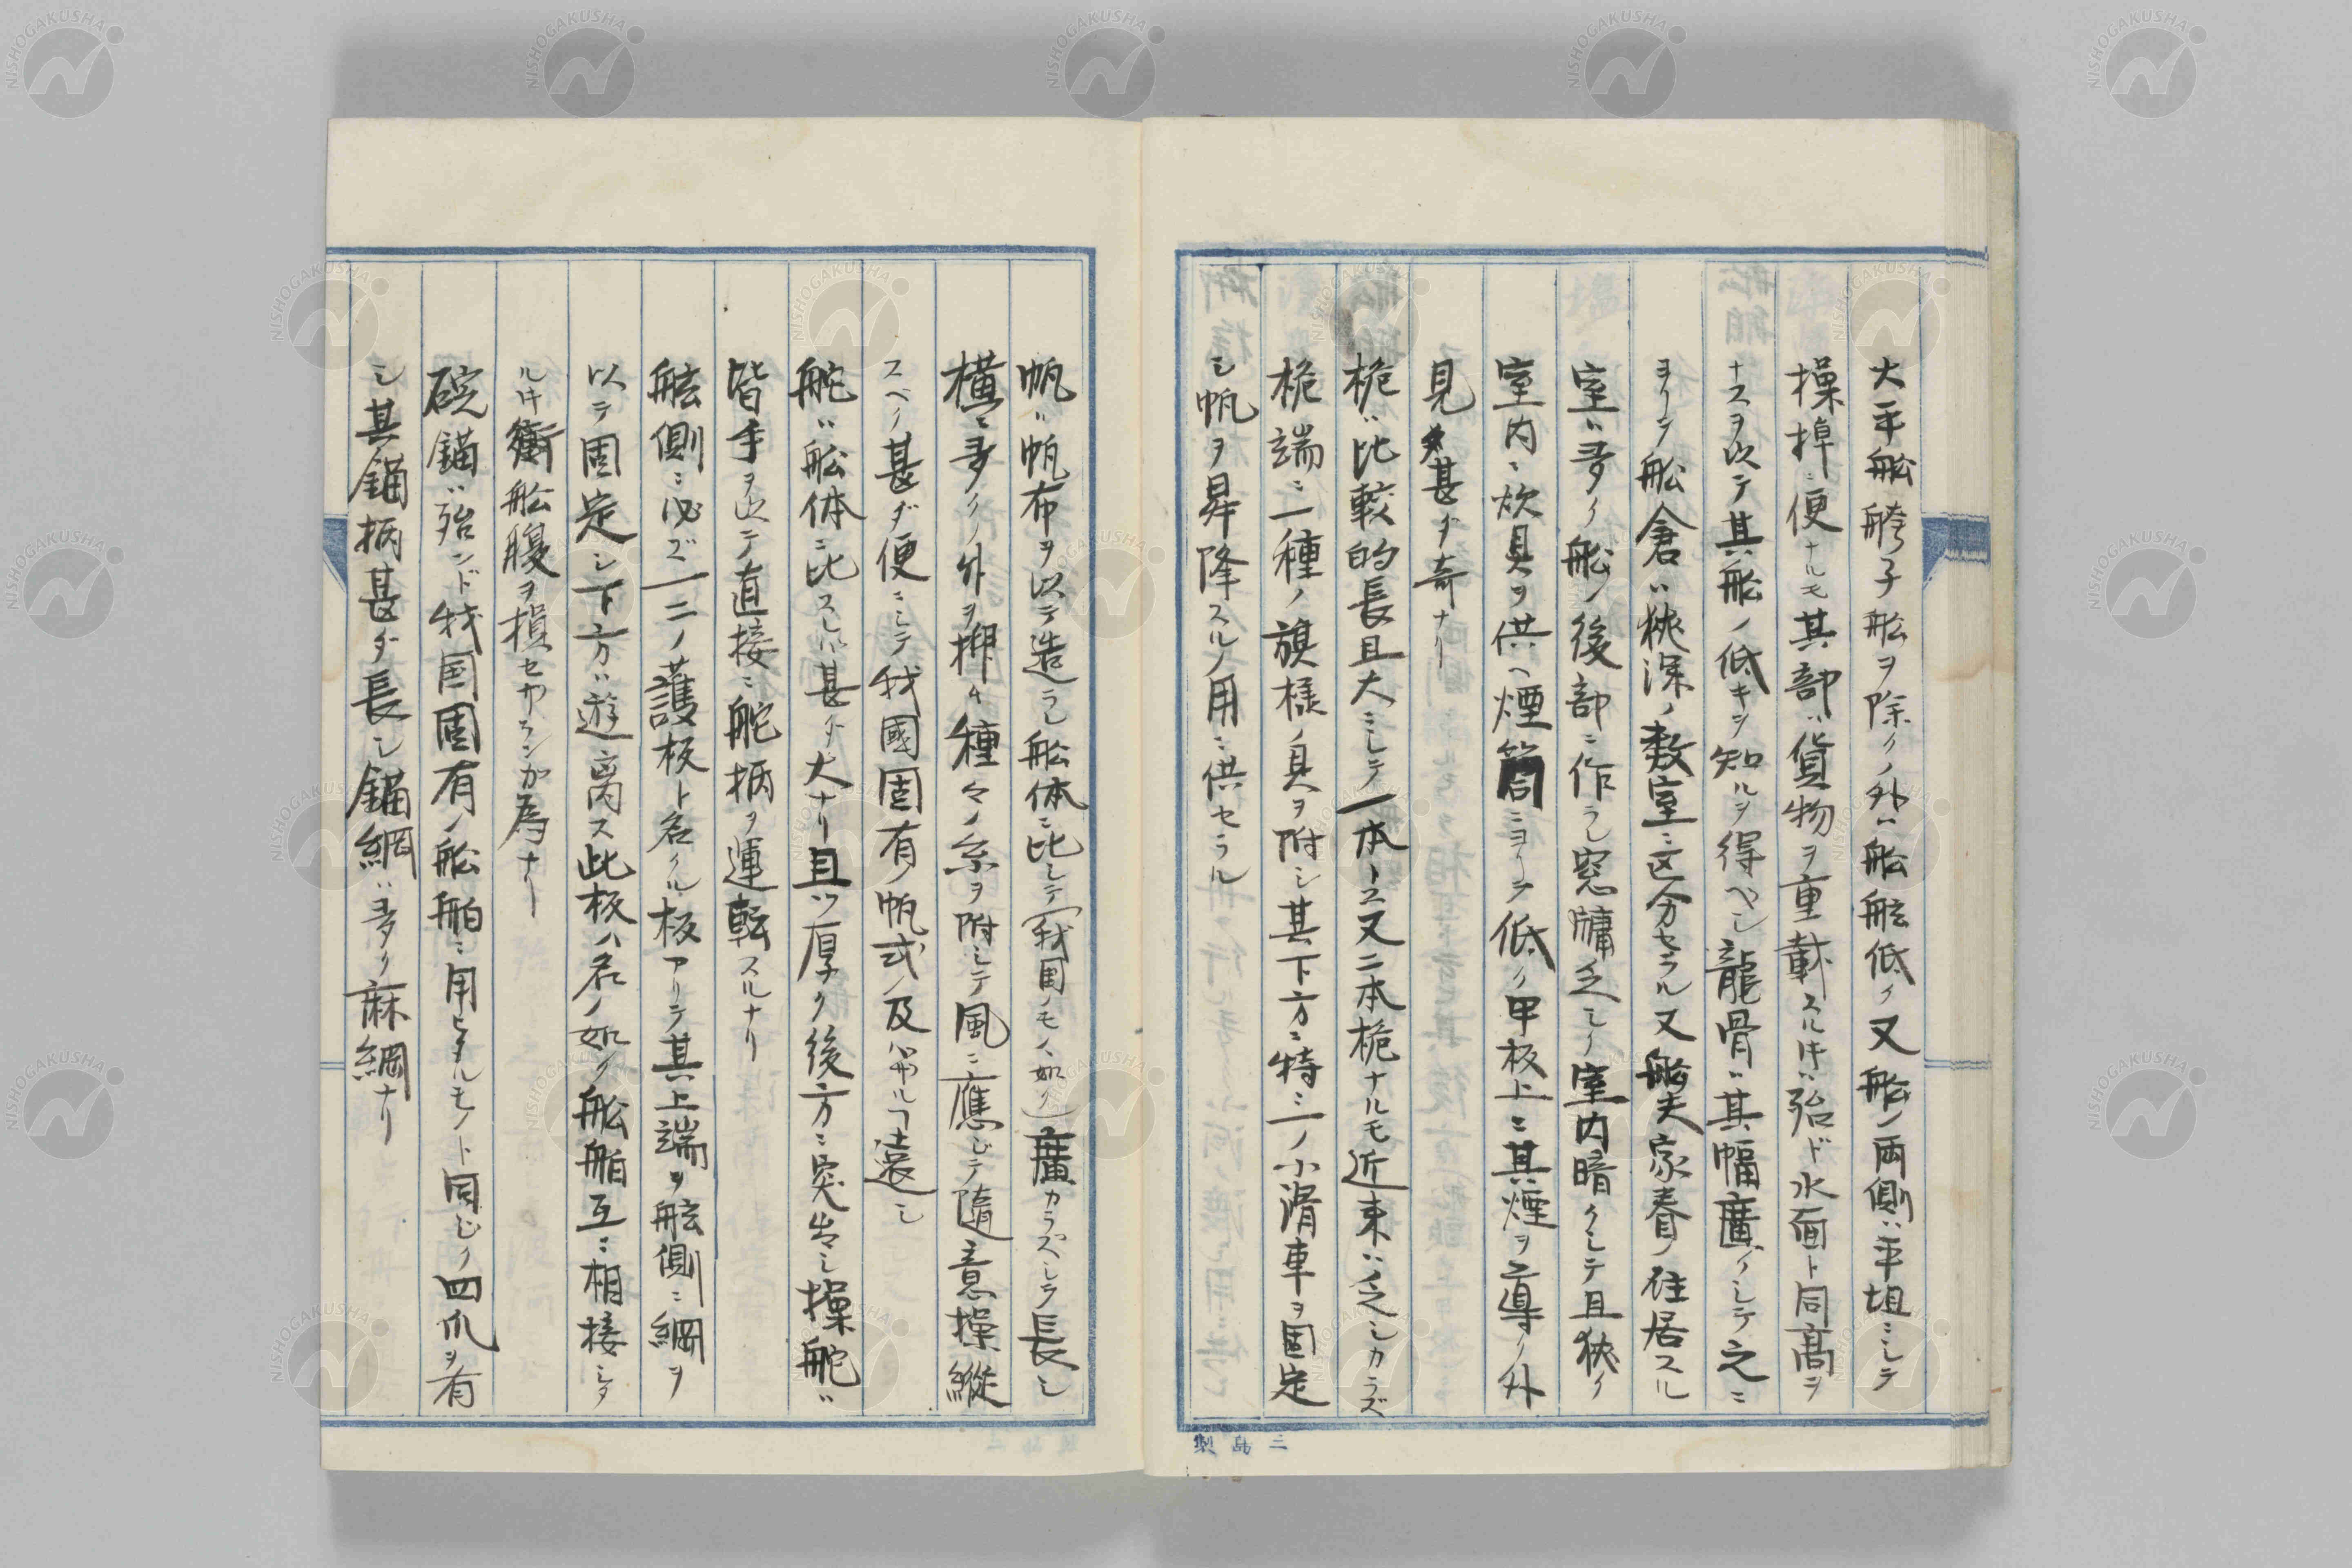 大平船舿子船ヲ除クノ外ハ船舷低ク又船ノ両側ハ平坦ニシテ
操掉ニ便ナルモ其部ハ貨物ヲ重載スルトキハ殆ド水面ト同高ヲ
ナスヲ以テ其船ノ低キヲ知ルヲ得ベシ龍骨ハ其幅廣クシテ之ニ
ヨリテ船倉ハ狭深ノ数室ニ区分セラル又船夫家眷ノ住居スル
室ハ多ク船ノ後部ニ作ラレ窓牗乏シク室内暗クシテ且狭ク
室内ニ炊具ヲ供ヘ煙筒ニヨリテ低ク甲板上ニ其煙ヲ導ク外
見甚ダ奇ナリ
桅ハ比較的長且大ニシテ一本トス又二本桅ナルモ近来ハ乏シカラズ
桅端ニ一種ノ旗様ノ具ヲ附シ其下方ニ特ニ一ノ小滑車ヲ固定
シ帆ヲ昇降スルノ用ニ供セラル
製島三
帆ハ帆布ヲ以テ造ラレ船体ニ比シテ(我国ノモノヽ如ク)廣カラズシテ長シ
横ニ多クノ外ヲ押ヘ種々ノ糸ヲ附シテ風ニ應ジテ隨意操縦
スベク甚ダ便ニシテ我國固有ノ帆式ノ及バザルヿ遠シ
舵ハ船体ニ比スレバ甚ダ大ナリ且ツ厚ク後方ニ突出シ操舵ハ
皆手ヲ以テ直接ニ舵柄ヲ運転スルナリ
舷側ニ必ズ一二ノ護板ト名クル板アリテ其上端ヲ舷側ニ綱ヲ
以テ固定シ下方ハ遊离ス此板ハ名ノ如ク船舶互ニ相接シタ
ルトキ衝船腹ヲ損セザランガ為ナリ
碇錨ハ殆ンド我国固有ノ船舶ニ用ヒタルモノト同ジク四爪ヲ有
シ其錨柄甚ダ長シ錨綱ハ多ク麻綱ナリ
NISHOGAKUSHA